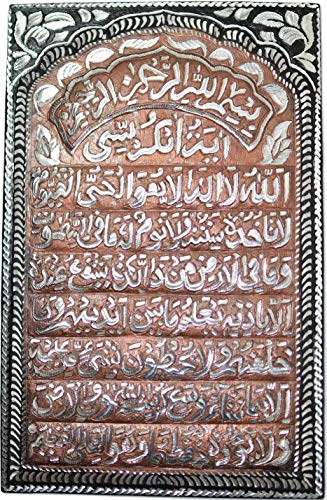 بسم الله الرحمن الرحيم
آية الكرسي
الله لا اله الا هو الحي القيوم
لا تاخذه سنة ولا نوم له ما في السموت
وما في الارض من ذا الذي يشفع عنده
الا باذنه يعلم ما بين ايديهم و
خلفهم ولا يحيطون بشيء من علمه
الا بما شاء وسع كرسيه السموت والارض
ولا يوده حفظهما وهو العلي العظيم